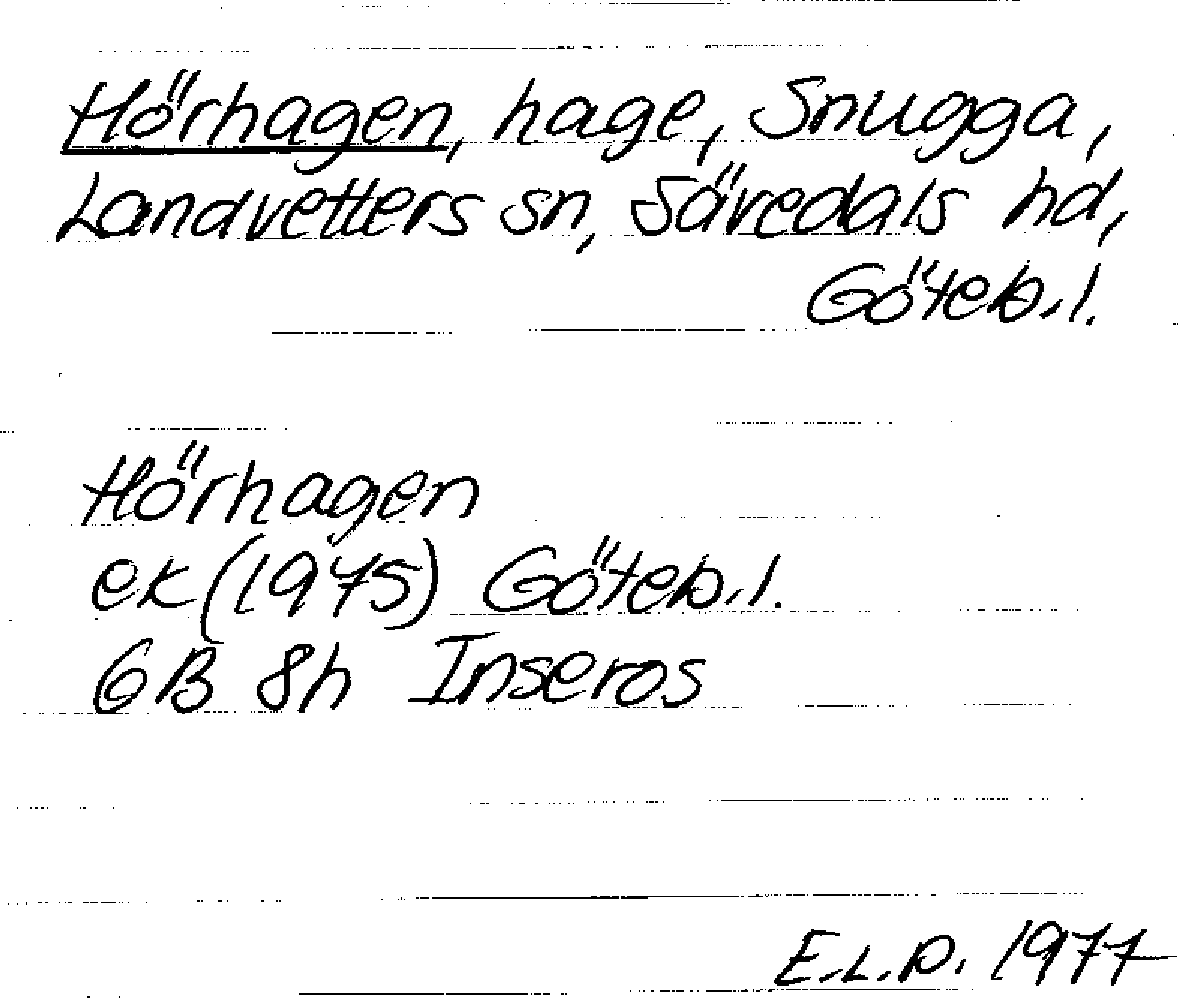 Hörhagen, hage, Snugga,
Landvetters sn, Sävedals hd,
Göteb.l.
Hörhagen
ek (1975) Göteb.l.
GB 8h Inseros
E.L.P. 1977